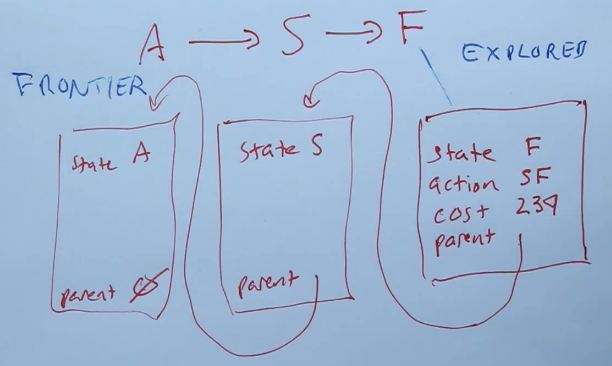 A → S → F
FRONTIER
EXPLORED
State A
parent Ø
State S
parent
state F
action SF
cost 239
parent